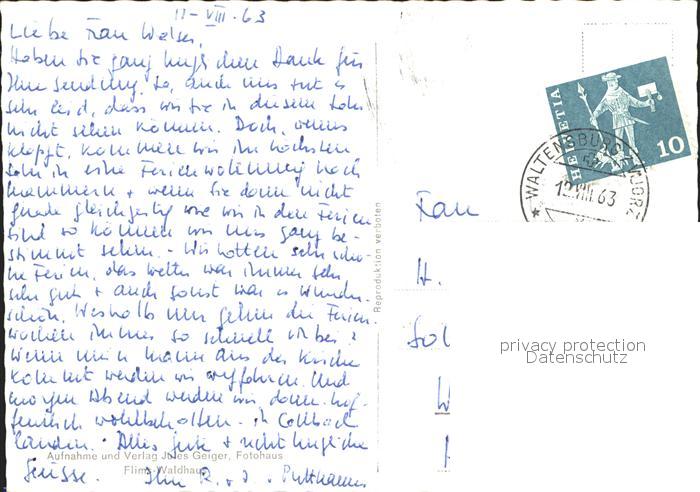 11-VIII-63
Liebe Frau Walser,
Haben Sie ganz herzlichen Dank für
Ihre Sendung. Ja, auch uns tut es
sehr leid, dass wir Sie in diesem Jahr
nicht sehen können. Doch, wenns
klappt, kommen wir im nächsten
Jahr in eine Ferienwohnung nach
+ wenn Sie dann nicht
grade gleichzeitig wie wir in den Ferien
sind so können wir uns ganz be-
stimmt sehen. - Wir hatten sehr schö-
ne Ferien, das Wetter war immer sehr
sehr gut + auch sonst war es wunder-
schön. Weshalb nur gehen die Ferien-
wochen immer so schnell vorbei?
Wenn mein Mann aus der Kirche
kommt werden wir wegfahren. Und
morgen Abend werden wir dann hof-
fentlich wohlbehalten in
landen. Alles Gute + recht herzliche
Grüsse. Ihre R. +
Aufnahme und Verlag Jules Geiger, Fotohaus
Flims-Waldhaus
Reproduktion verboten
HELVETIA
10
WALTENSBURG/VUORZ
12.VIII.63
Frau
H.
privacy protection
Datenschutz